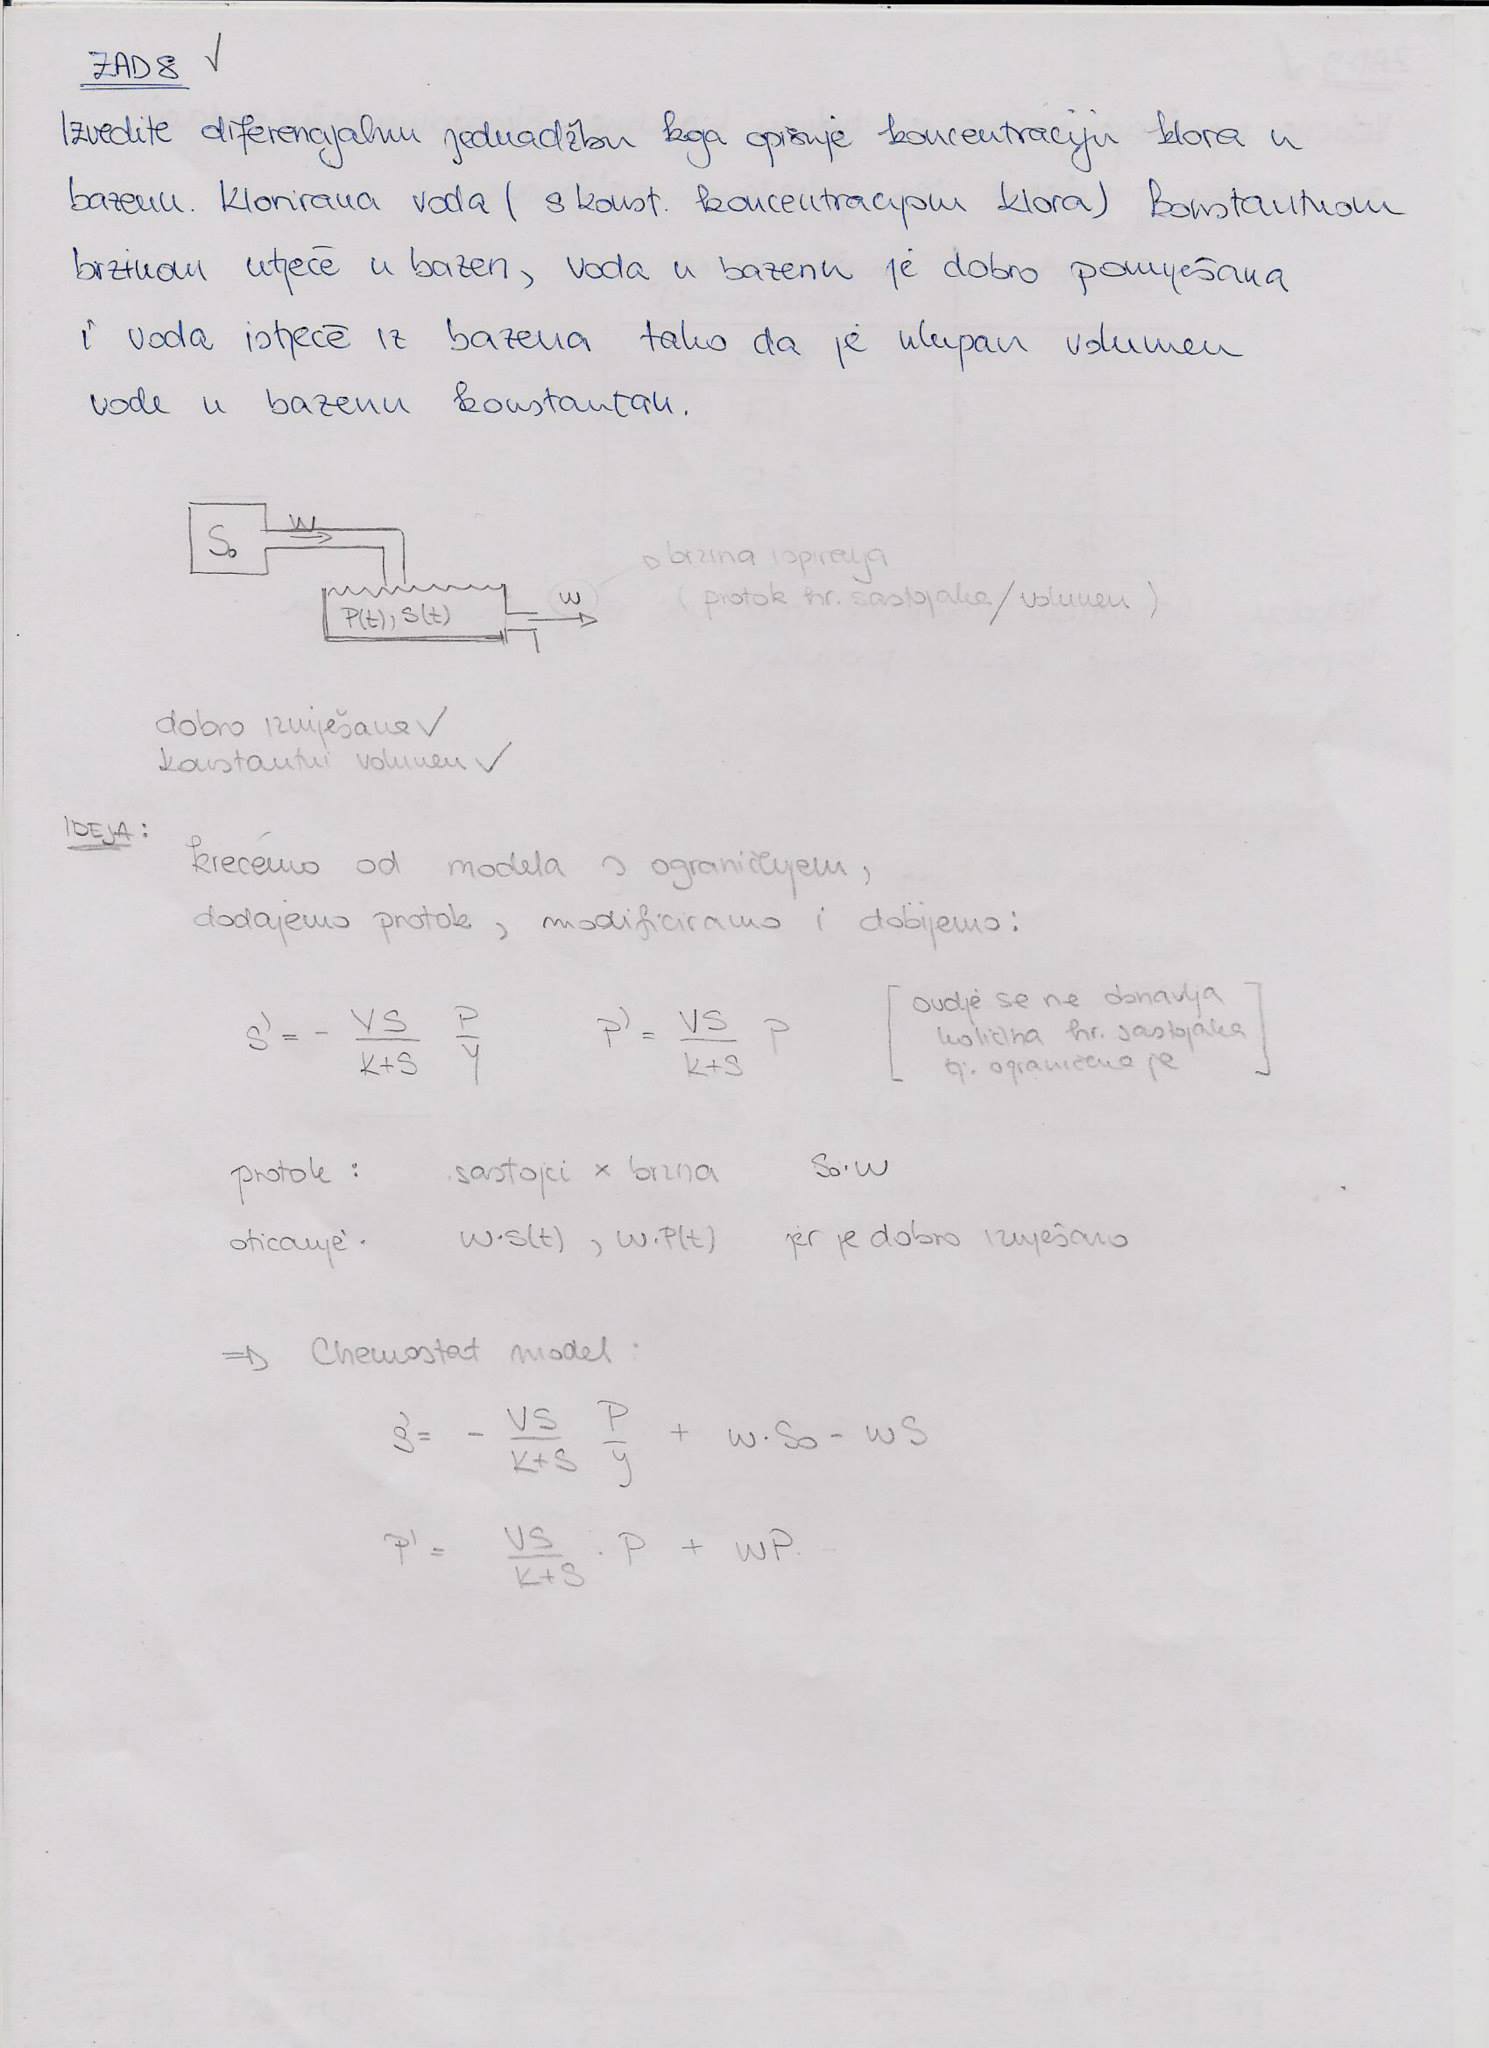 ZAD 8 ✓
Izvedite diferencijalnu jednadžbu koja opisuje koncentraciju klora u
bazenu. Klorirana voda ( s konst. koncentracijom klora) konstantnom
brzinom utječe u bazen, voda u bazenu je dobro pomiješana
i voda istječe iz bazena tako da je ukupan volumen
vode u bazenu konstantan.
S₀
w
P(t), S(t)
w
brzina ispiranja
( protok hr. sastojaka / volumen )
dobro izmiješane ✓
konstantni volumen ✓
IDEJA:
krećemo od modela s ograničenjem,
dodajemo protok, modificiramo i dobijemo:
S' = - VS/(K+S) P/y P' = VS/(K+S) P
[ ovdje se ne obnavlja
količina hr. sastojaka
tj. ograničena je ]
protok : sastojci × brzina S₀·w
oticanje: w·S(t) , w·P(t) jer je dobro izmješano
⇒ Chemostat model :
S' = - VS/(K+S) P/y + w·S₀ - wS
P' = VS/(K+S) · P + wP.